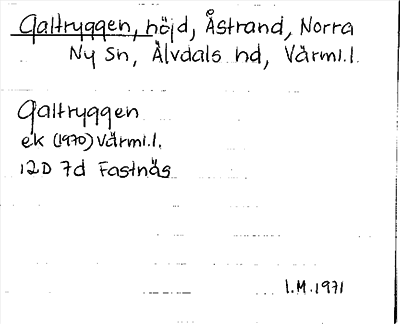 Galtryggen, höjd, Åstrand, Norra
Ny Sn, Älvdals hd, Värml.l.
Galtryggen
ek (1970) Värml.l.
12D 7d Fastnäs
I.M. 1971